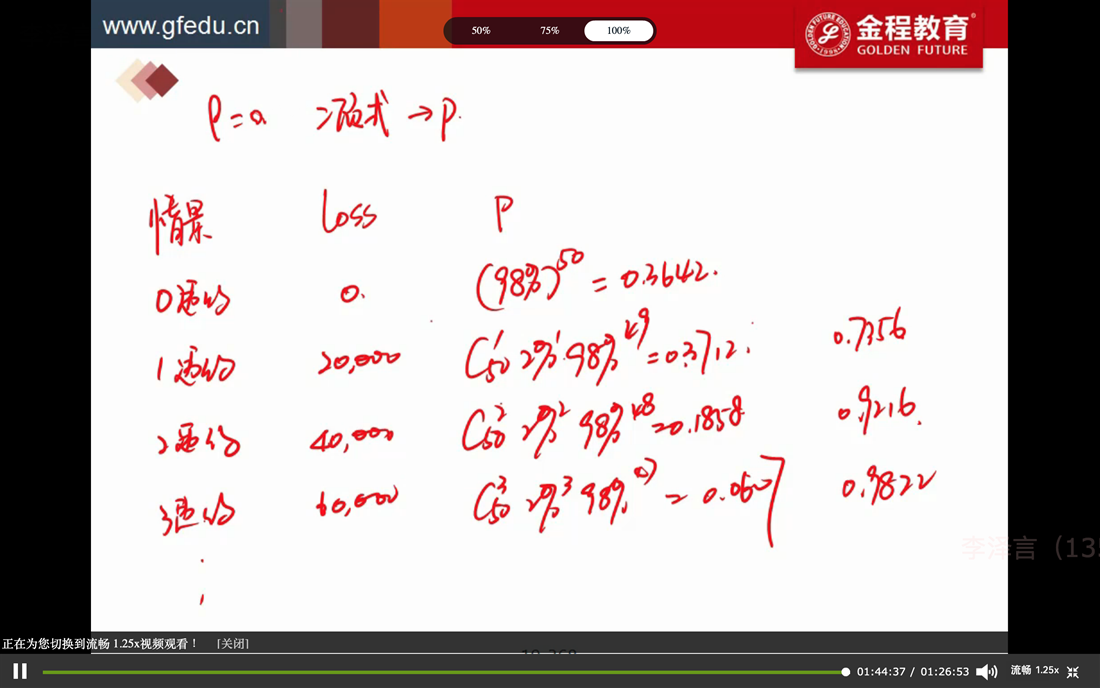 www.gfedu.cn
50% 75% 100%
金程教育®
GOLDEN FUTURE
二项式 → P.
情景 Loss P
0违约 0. (98%)^50 = 0.3642.
1违约 20,000 C₅₀¹ 2%¹ 98%⁴⁹ = 0.3712. 0.7356
2违约 40,000 C₅₀² 2%² 98%⁴⁸ = 0.1858 0.9216.
3违约 60,000 C₅₀³ 2%³ 98%⁴⁷ = 0.0607 0.9822
李泽言（135
正在为您切换到流畅 1.25x视频观看！ [关闭]
01:44:37 / 01:26:53 流畅 1.25x